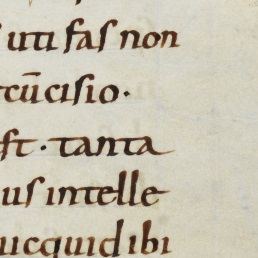 uti fas non
cūcisio·
st· tanta
us intelle
uicquid ibi